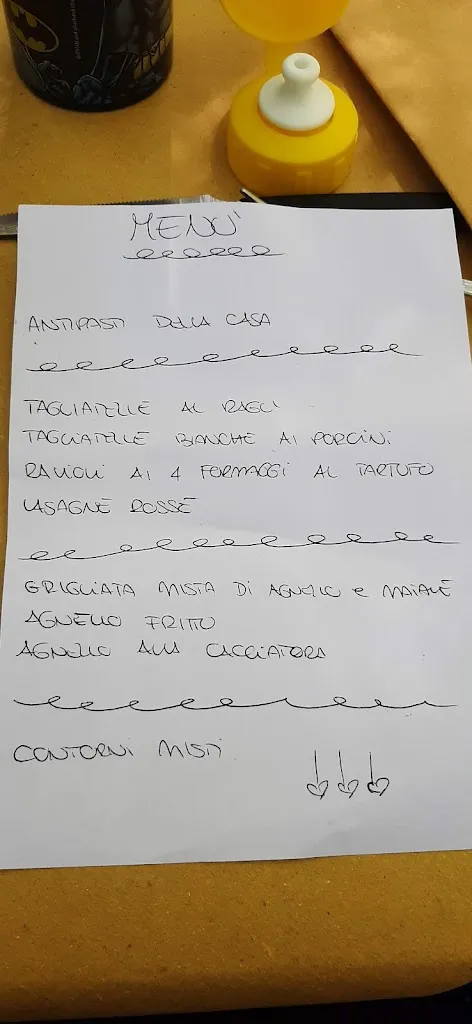 MENU'
ANTIPASTI DELLA CASA
TAGLIATELLE AL RAGU'
TAGLIATELLE BIANCHE AI PORCINI
RAVIOLI AI 4 FORMAGGI AL TARTUFO
LASAGNE ROSSE
GRIGLIATA MISTA DI AGNELLO e MAIALE
AGNELLO FRITTO
AGNELLO ALLA CACCIATORA
CONTORNI MISTI